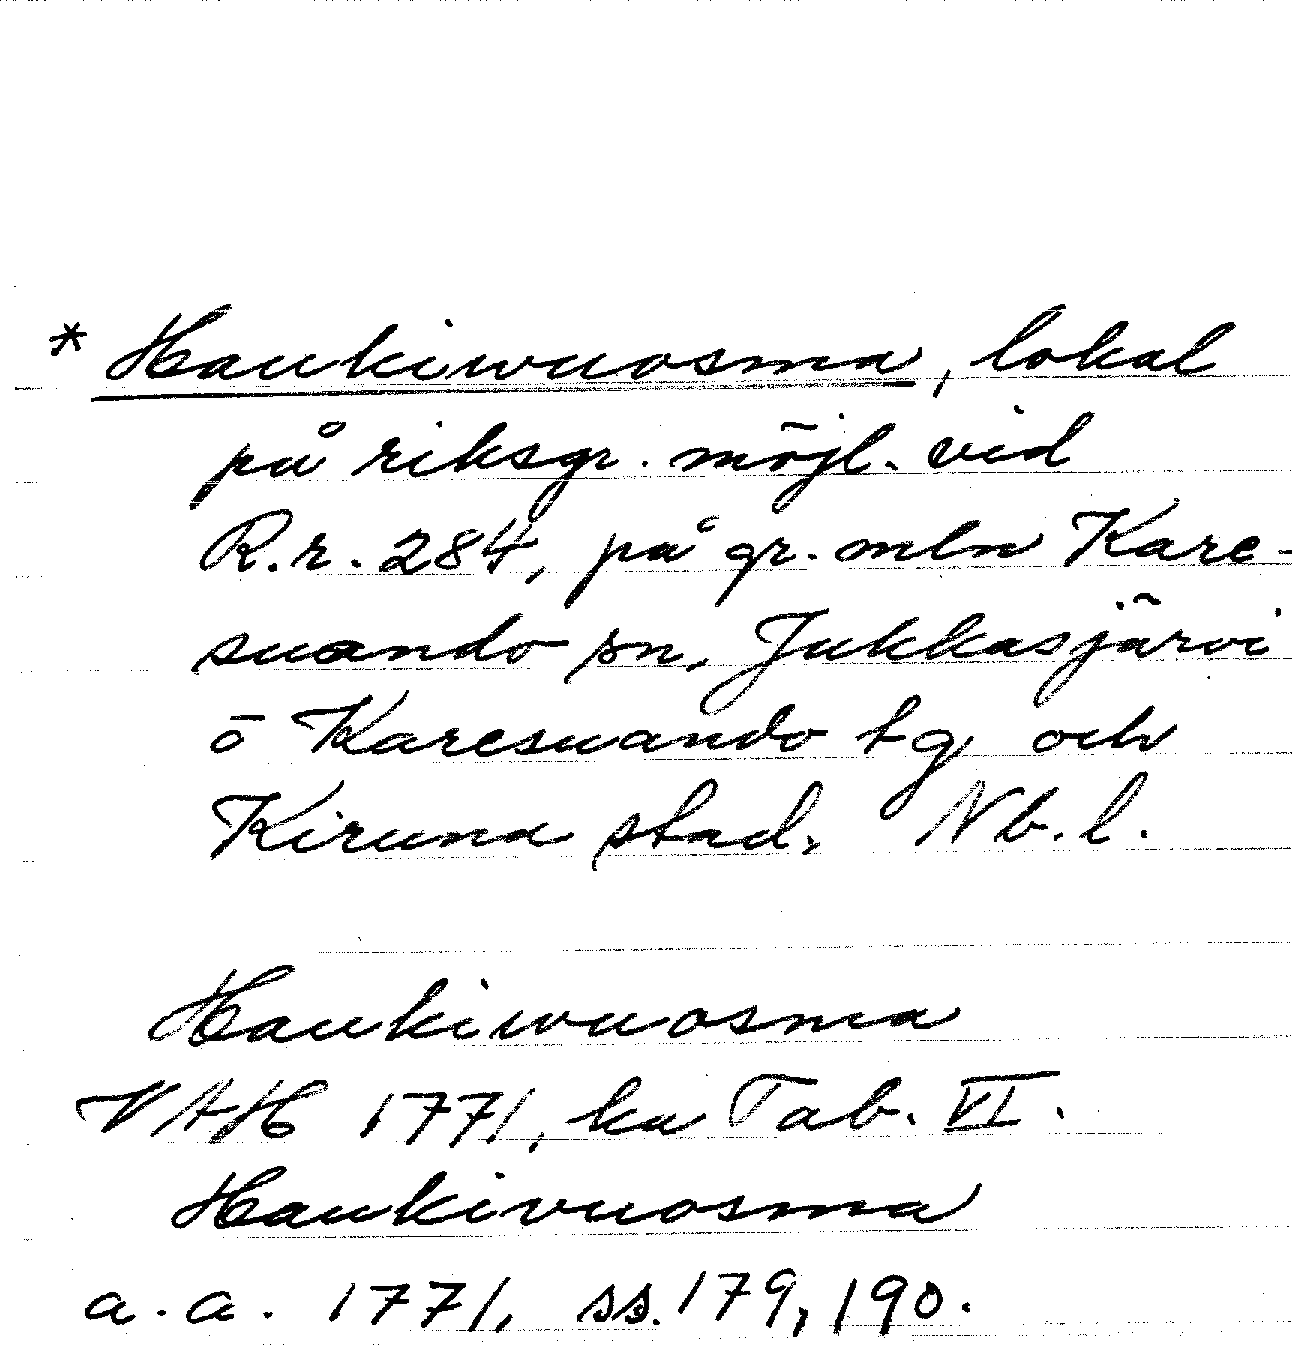 * Haukiwuosma, lokal
på riksgr. möjl. vid
R.r. 284, på gr. mln Kare-
suando sn, Jukkasjärvi
o Karesuando tg och
Kiruna stad. Nb. l.
Haukiwuosma
VAH 1771, ka Tab. VI.
Haukivuosma
a.a. 1771, ss. 179, 190.